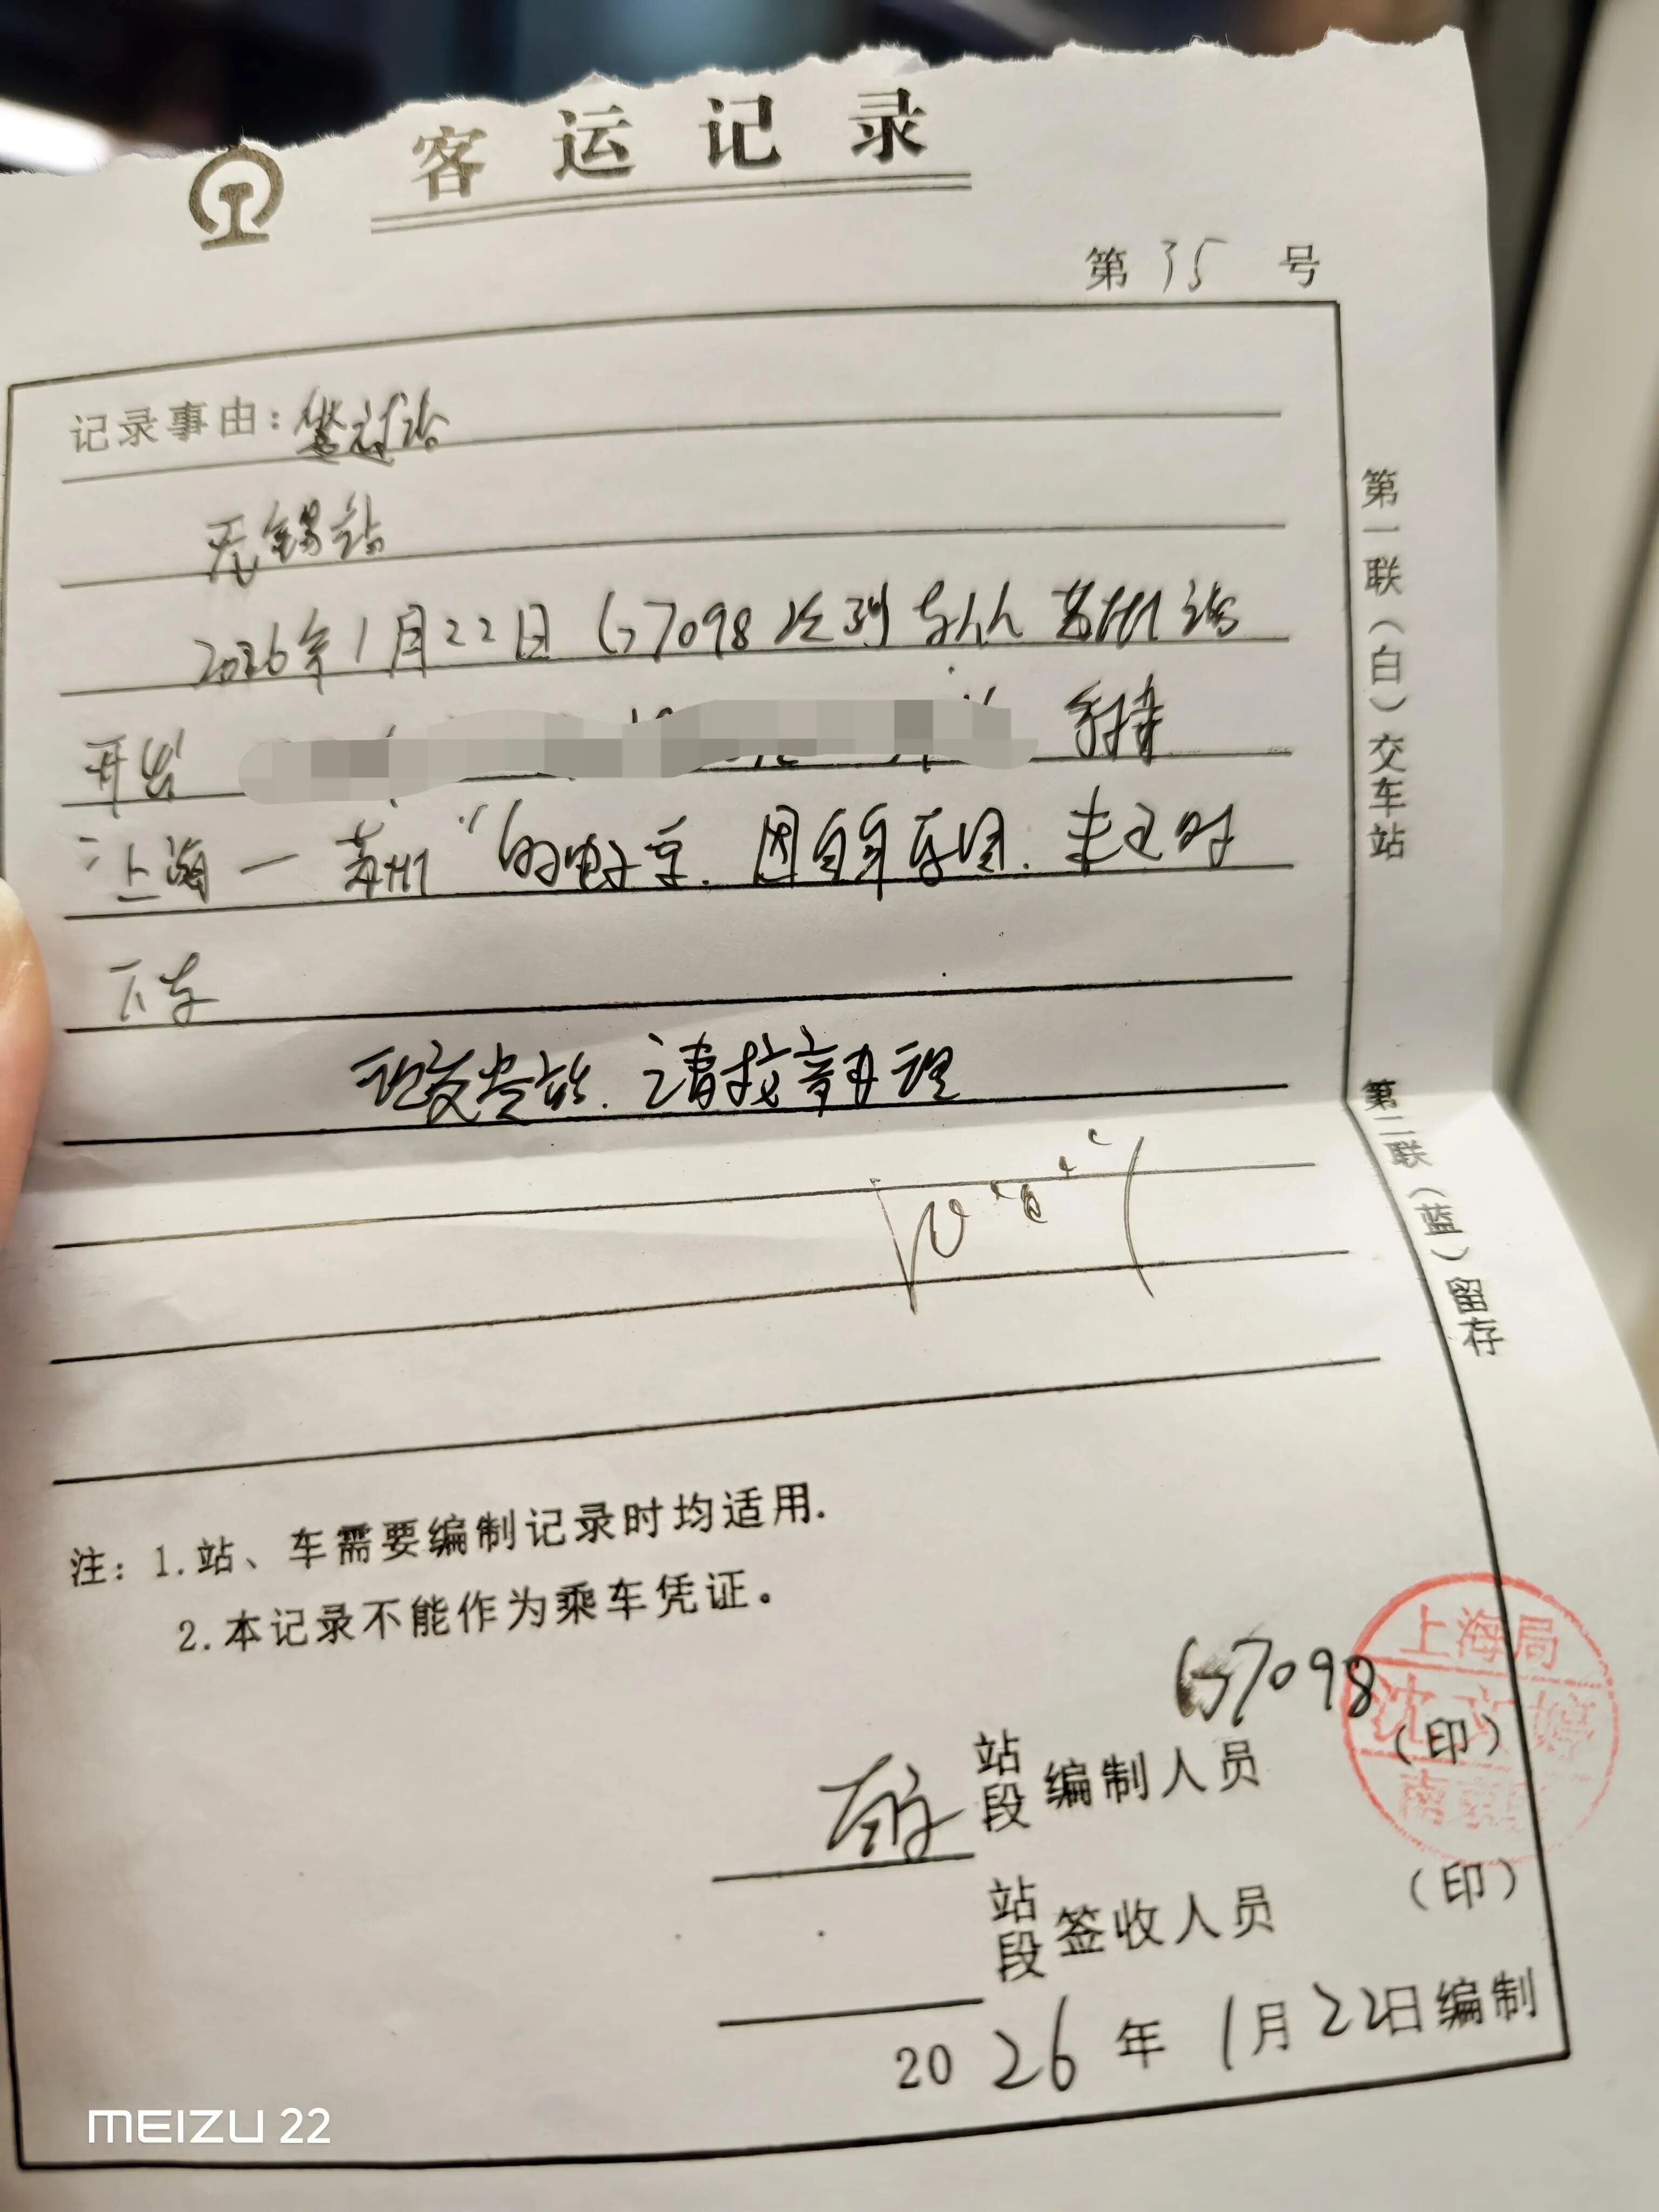 客运记录
第 35 号
记录事由：越过站
无锡站
2026年1月22日 G7098次列车从苏州站
开出 手持
"上海一苏州"的电子票.因自身原因.未及时
下车
现交贵站.请按章办理
注：1.站、车需要编制记录时均适用.
2.本记录不能作为乘车凭证。
G7098
站段 编制人员 （印）
站段 签收人员 （印）
2026年1月22日编制
第一联（白）交车站
第二联（蓝）留存
上海局
沈 婷
南京
MEIZU 22